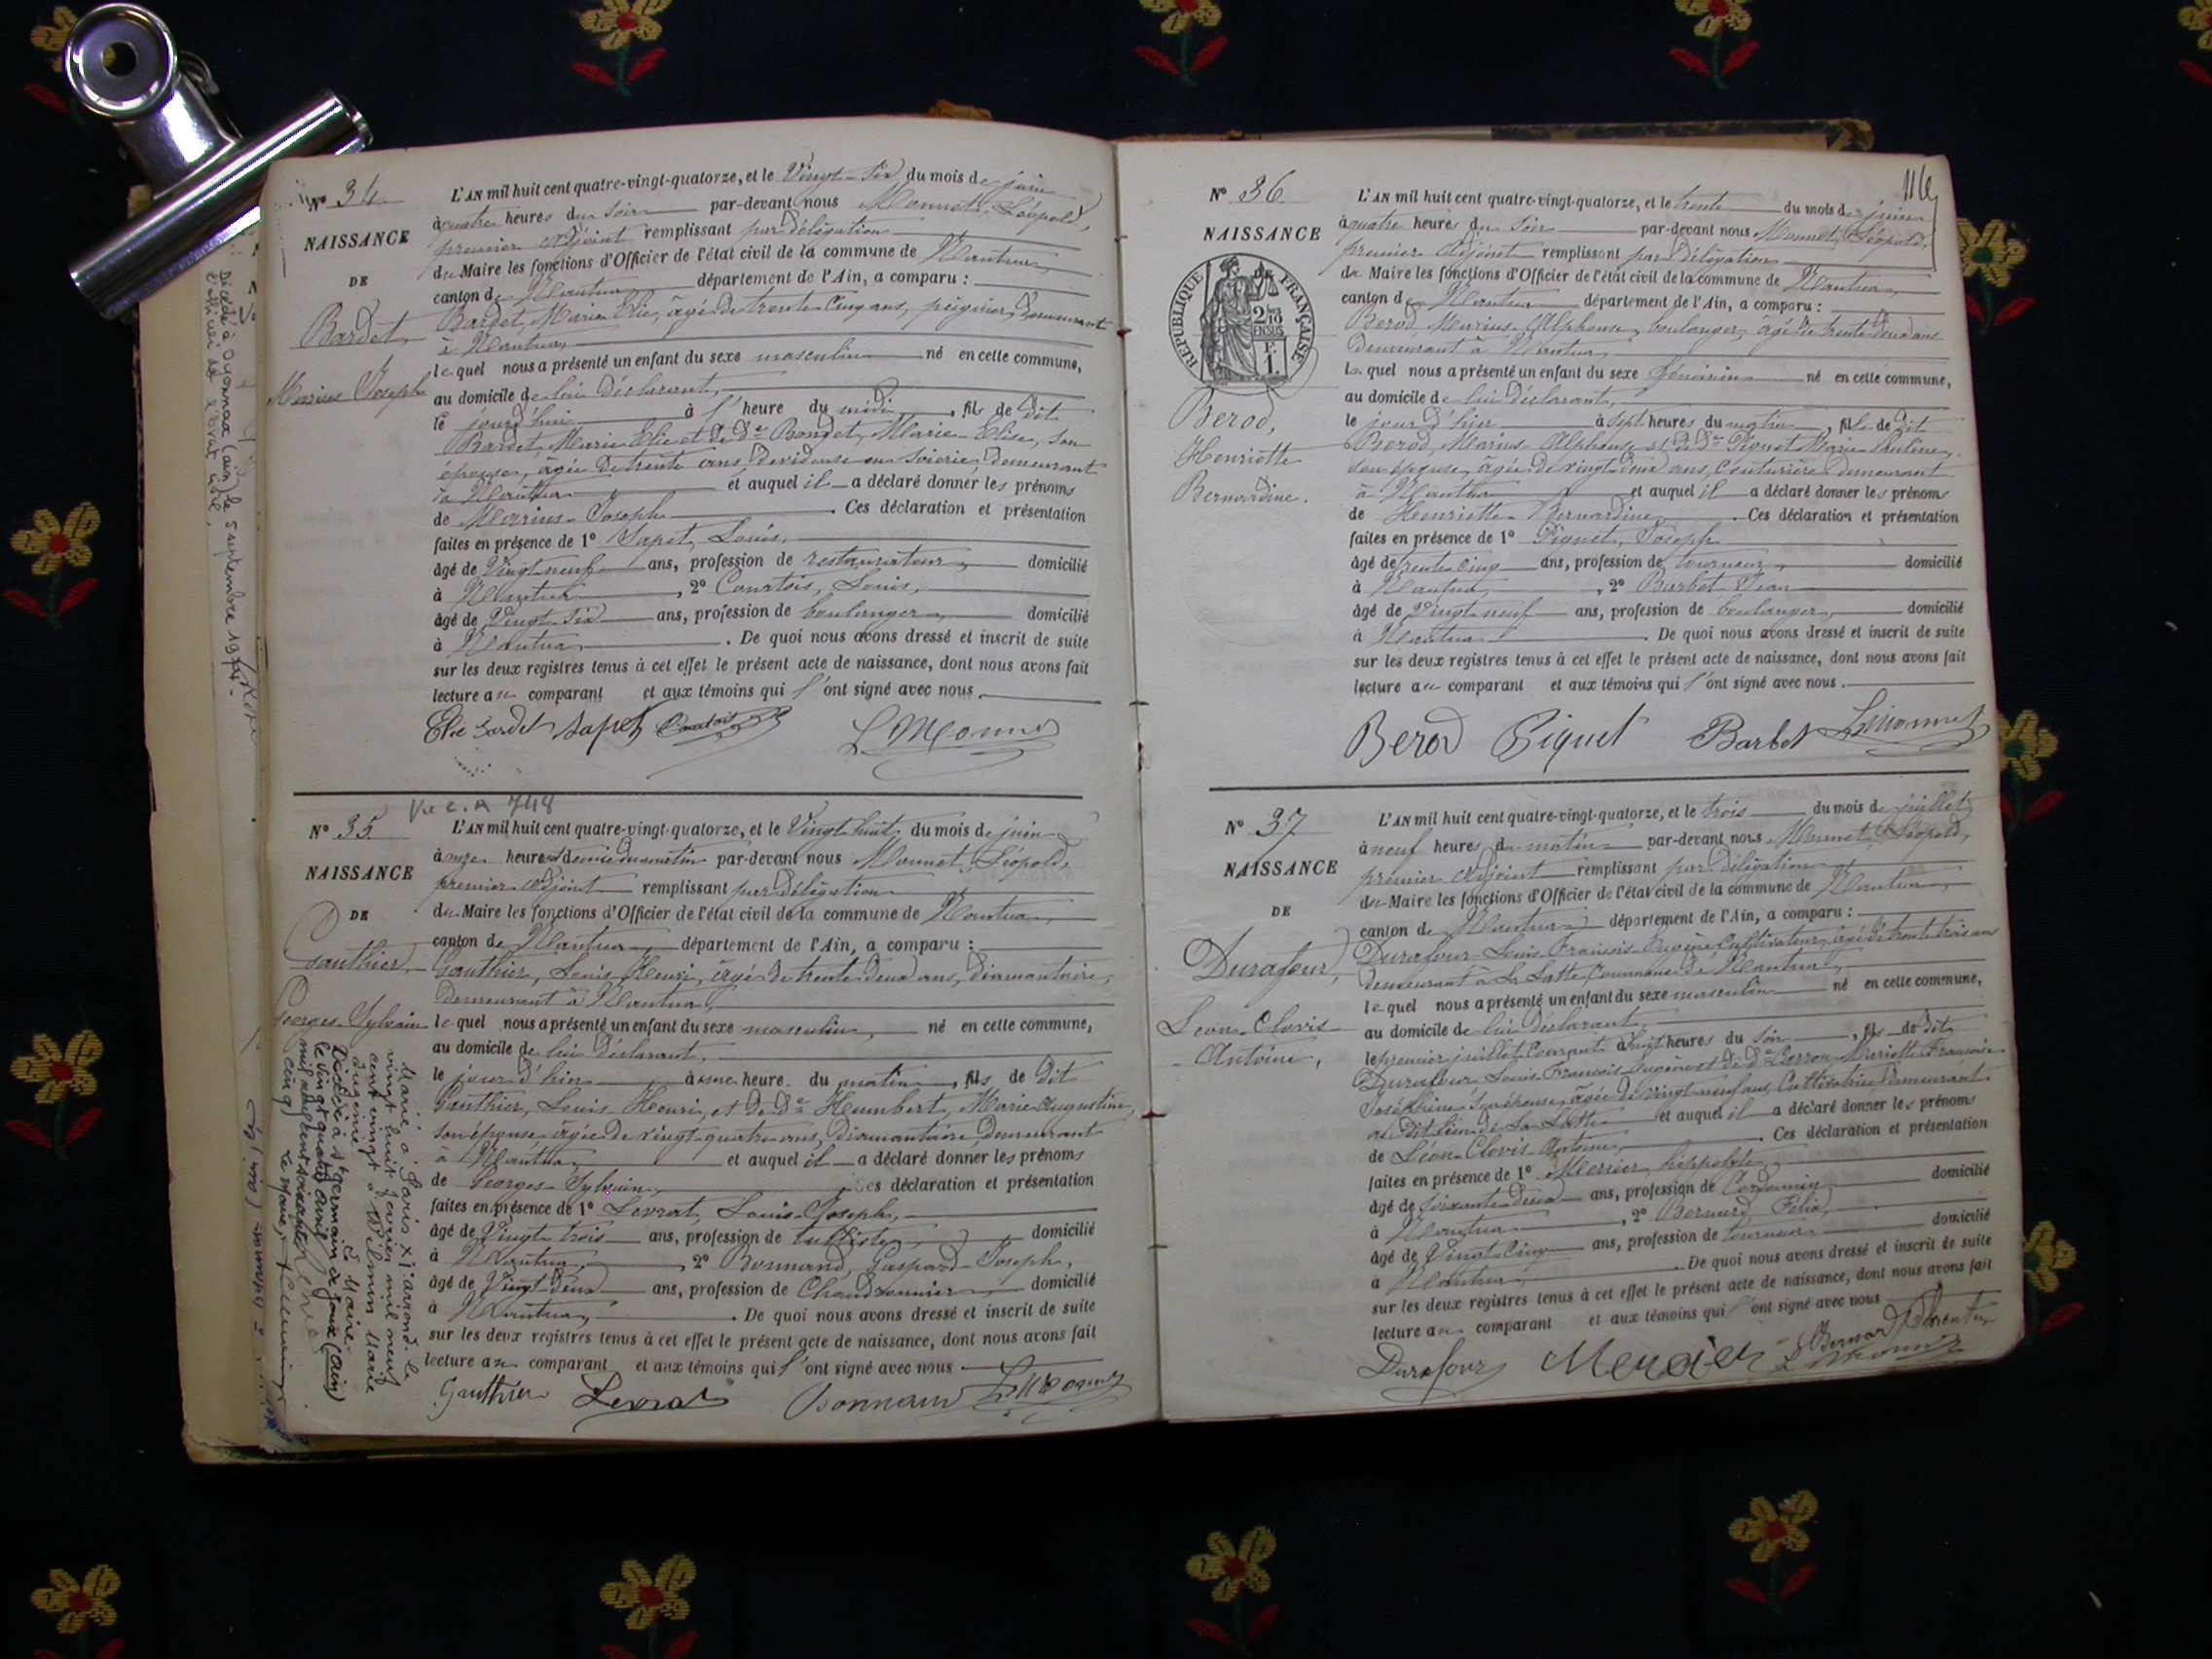 N° 34
NAISSANCE
DE
Bardet,
Marius Joseph
L'AN mil huit cent quatre-vingt-quatorze, et le Vingt-Six du mois de juin
à quatre heures du soir par-devant nous Monnet, Léopold,
premier adjoint remplissant par délégation
du Maire les fonctions d'Officier de l'état civil de la commune de Nantua,
canton de Nantua département de l'Ain, a comparu :
Bardet, Marie Elie, âgé de trente cinq ans, peignier, demeurant
à Nantua,
lequel nous a présenté un enfant du sexe masculin né en cette commune,
au domicile de lui déclarant,
le jourd'hui à l' heure du midi, fils de dit
Bardet, Marie Elie et de De Bondet, Marie-Elise, son
épouse, âgée de trente ans, devideuse en soierie, demeurant
à Nantua et auquel il a déclaré donner les prénoms
de Marius-Joseph. Ces déclaration et présentation
faites en présence de 1° Sapet, Louis,
âgé de Vingt-neuf ans, profession de restaurateur, domicilié
à Nantua, 2° Courtois, Louis,
âgé de Vingt-Six ans, profession de boulanger, domicilié
à Nantua. De quoi nous avons dressé et inscrit de suite
sur les deux registres tenus à cet effet le présent acte de naissance, dont nous avons fait
lecture au comparant et aux témoins qui l'ont signé avec nous.
Elie Bardet Sapet Courtois L. Monnet
Décédé à Oyonnax (ain) le 5 septembre 1974.
L'officier de l'état civil,
748
N° 35
NAISSANCE
DE
Gauthier,
Georges-Sylvain
L'AN mil huit cent quatre-vingt-quatorze, et le Vingt-huit du mois de juin
à onze heures et demie du matin par-devant nous Monnet, Léopold,
premier adjoint remplissant par délégation
du Maire les fonctions d'Officier de l'état civil de la commune de Nantua,
canton de Nantua, département de l'Ain, a comparu :
Gauthier, Louis Henri, âgé de trente deux ans, diamantaire,
demeurant à Nantua,
lequel nous a présenté un enfant du sexe masculin, né en cette commune,
au domicile de lui déclarant,
le jour d'hier à une heure du matin, fils de dit
Gauthier, Louis-Henri, et de De Humbert, Marie-Augustine,
son épouse âgée de vingt-quatre ans, diamantaire, demeurant
à Nantua et auquel il a déclaré donner les prénoms
de Georges-Sylvain, Ces déclaration et présentation
faites en présence de 1° Levrat, Louis-Joseph,
âgé de Vingt-trois ans, profession de tulliste, domicilié
à Nantua, 2° Bonnand, Gaspard-Joseph,
âgé de Vingt-Deux ans, profession de Chaudronnier domicilié
à Nantua, . De quoi nous avons dressé et inscrit de suite
sur les deux registres tenus à cet effet le présent acte de naissance, dont nous avons fait
lecture au comparant et aux témoins qui l'ont signé avec nous
Gauthier Levrat Bonnand L. Monnet
Marié à Paris XIarrond. le
vingt huit février mil neuf
cent vingt à Wilmin Marie
Eugénie
Le Maire
Décédé à St Germain de Joux (Ain)
le vingt quatre avril
mil neuf cent soixante
cinq)
Le Maire,
N° 36
NAISSANCE
DE
RÉPUBLIQUE FRANÇAISE
Berod,
Henriette
Bernardine.
L'AN mil huit cent quatre-vingt-quatorze, et le trente du mois de juin
à quatre heures du soir par-devant nous Monnet, Léopold,
premier adjoint remplissant par délégation
du Maire les fonctions d'Officier de l'état civil de la commune de Nantua,
canton de Nantua département de l'Ain, a comparu :
Berod Marius-Alphonse, boulanger, âgé de trente-deux ans
demeurant à Nantua,
lequel nous a présenté un enfant du sexe féminin né en cette commune,
au domicile de lui déclarant,
le jour d'hier à sept heures du matin, fille de dit
Berod, Marius-Alphonse et de De Marie-Pauline,
son épouse, âgée de vingt-deux ans, couturière demeurant
à Nantua et auquel il a déclaré donner les prénoms
de Henriette Bernardine. Ces déclaration et présentation
faites en présence de 1° Piquet, Joseph
âgé de trente cinq ans, profession de tourneur, domicilié
à Nantua, 2° Barbet Jean
âgé de Vingt-neuf ans, profession de boulanger, domicilié
à Nantua. De quoi nous avons dressé et inscrit de suite
sur les deux registres tenus à cet effet le présent acte de naissance, dont nous avons fait
lecture au comparant et aux témoins qui l'ont signé avec nous.
Berod Piquet Barbet L. Monnet
N° 37
NAISSANCE
DE
Durafour,
Léon-Clovis
-Antoine,
L'AN mil huit cent quatre-vingt-quatorze, et le trois du mois de juillet
à neuf heures du matin par-devant nous Monnet, Léopold,
premier adjoint remplissant par délégation
du Maire les fonctions d'Officier de l'état civil de la commune de Nantua,
canton de Nantua département de l'Ain, a comparu :
Durafour Louis-François-Eugène Cultivateur, âgé de trente trois ans
demeurant à La Latte, Commune de Nantua,
lequel nous a présenté un enfant du sexe masculin né en cette commune,
au domicile de lui déclarant
le premier juillet Courant à heures du soir, fils de dit
Durafour Louis-François-Eugène et de De Perron Mariette Françoise
Joséphine son épouse, âgée de vingt-neuf ans, Cultivatrice demeurant
au dit lieu de La Latte et auquel il a déclaré donner les prénoms
de Léon-Clovis-Antoine, . Ces déclaration et présentation
faites en présence de 1° Mercier, hippolyte,
âgé de soixante-deux ans, profession de Cordonnier domicilié
à Nantua, 2° Bernard, Félix,
âgé de Vingt-Cinq ans, profession de tourneur domicilié
à Nantua. De quoi nous avons dressé et inscrit de suite
sur les deux registres tenus à cet effet le présent acte de naissance, dont nous avons fait
lecture au comparant et aux témoins qui l'ont signé avec nous
Durafour Mercier Bernard
L. Monnet